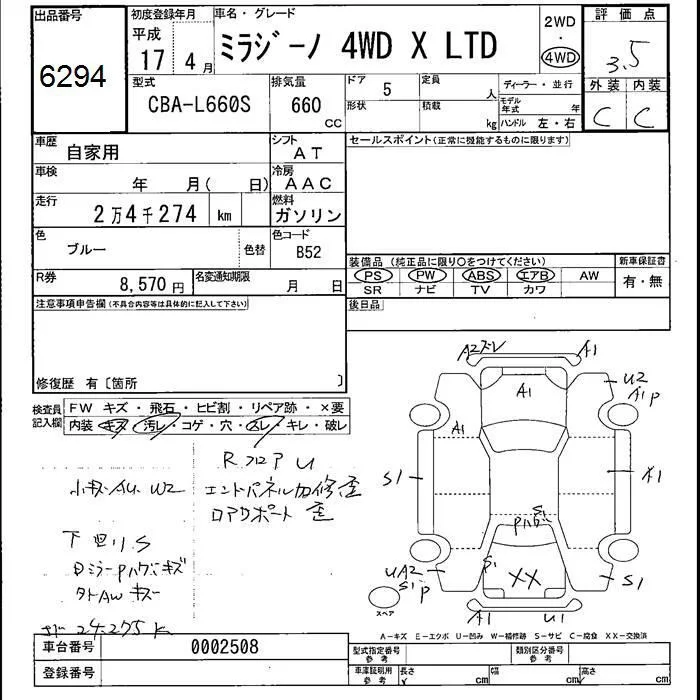 出品番号 初度登録年月 車名・グレード 2WD 評価点
6294 平成 17 4月 ミラジーノ 4WD X LTD ・ 4WD 3.5
型式 排気量 ドア 5 定員 人 ディーラー・並行 外装 内装
CBA-L660S 660 CC 形状 積載 kg モデル年式 年 ハンドル 左・右 C C
車歴 自家用 シフト AT セールスポイント(正常に機能するものに限ります)
車検 年 月( 日) 冷房 AAC
走行 2万4千274 km 燃料 ガソリン
色 ブルー 色替 色コード B52
装備品 (純正品に限り○をつけてください) 新車保証書
R券 8,570円 名変通知期限 月 日 PS PW ABS エアB AW 有・無
SR ナビ TV カワ
注意事項申告欄(不具合内容等は具体的に記入して下さい) 後日品
修復歴 有〔箇所 〕
検査員記入欄 FW キズ・飛石・ヒビ割・リペア跡・×要
内装 キズ・汚レ・コゲ・穴・スレ・キレ・破レ
A2 A1
A1 U2
A1 P
A1
S1 A1
R フロア U
エンドパネル加修歪
ロアサポート 歪
小キズ・AU. U2
下 S
キズ
AW キズ
24,275 k
S1
S1 XX
UA2 S1 P S1
スペア A1 U1
A-キズ E-エクボ U-凹み W-補修跡 S-サビ C-腐食 XX-交換済
車台番号 0002508 型式指定番号 参考 類別区分番号 参考
登録番号 車庫証明用 参考 長さ cm 幅 cm 高さ cm